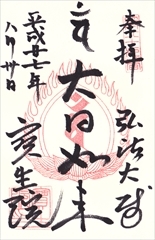 奉拝
弘法大師
大日如来
平成廿七年
八月廿日
宝生院